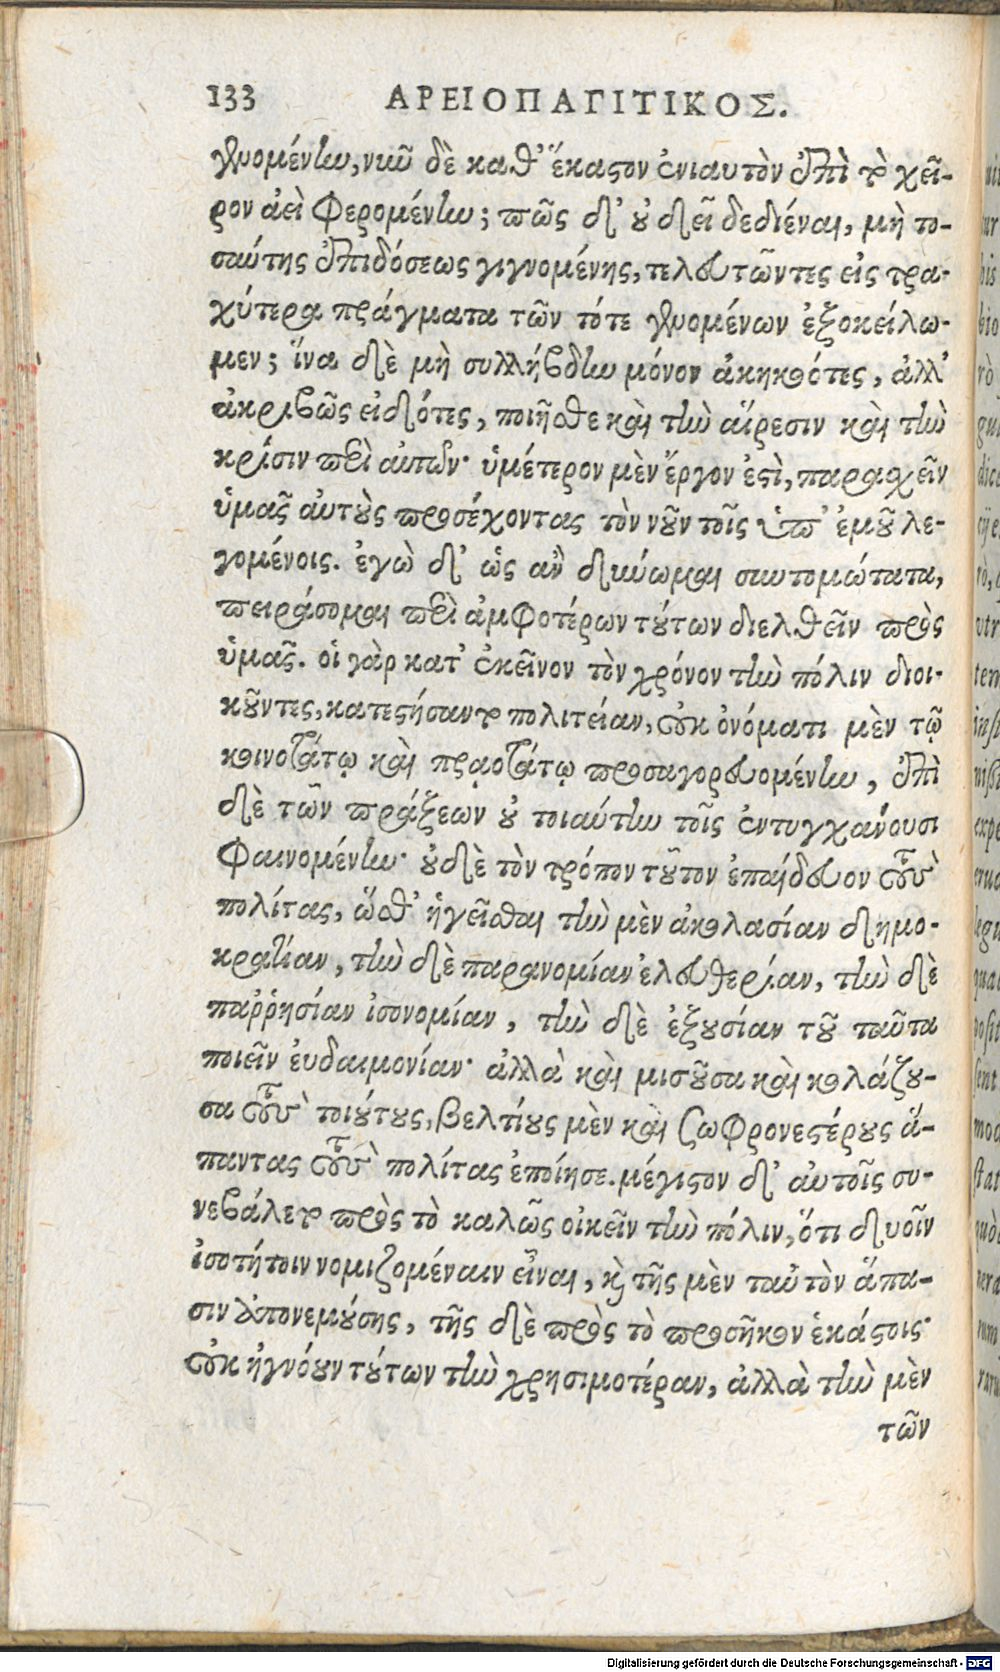 133 ΑΡΕΙΟΠΑΓΙΤΙΚΟΣ.
γενομένην, νῦν δὲ καθ' ἕκαστον ἐνιαυτὸν ἐπὶ τὸ χεῖ-
ρον ἀεὶ φερομένην; πῶς δ' οὐ δεῖ δεδιέναι, μὴ το-
σαύτης ἐπιδόσεως γιγνομένης, τελευτῶντες εἰς τρα-
χύτερα πράγματα τῶν τότε γενομένων ἐξοκείλω-
μεν; ἵνα δὲ μὴ συλλήβδην μόνον ἀκηκοότες, ἀλλ'
ἀκριβῶς εἰδότες, ποιῆσθε καὶ τὴν αἵρεσιν καὶ τὴν
κρίσιν περὶ αὐτῶν· ὑμέτερον μὲν ἔργον ἐστὶ, παρασχεῖν
ὑμᾶς αὐτοὺς προσέχοντας τὸν νοῦν τοῖς ὑπ' ἐμοῦ λε-
γομένοις. ἐγὼ δ' ὡς ἂν δύνωμαι συντομώτατα,
πειράσομαι περὶ ἀμφοτέρων τούτων διελθεῖν πρὸς
ὑμᾶς. οἱ γὰρ κατ' ἐκεῖνον τὸν χρόνον τὴν πόλιν διοι-
κοῦντες, κατεστήσαντο πολιτείαν, οὐκ ὀνόματι μὲν τῷ
κοινοτάτῳ καὶ πραοτάτῳ προσαγορευομένην, ἐπὶ
δὲ τῶν πράξεων οὐ τοιαύτην τοῖς ἐντυγχάνουσι
φαινομένην· οὐδὲ τὸν τρόπον τοῦτον ἐπαίδευον τοὺς
πολίτας, ὥσθ' ἡγεῖσθαι τὴν μὲν ἀκολασίαν δημο-
κρατίαν, τὴν δὲ παρανομίαν ἐλευθερίαν, τὴν δὲ
παῤῥησίαν ἰσονομίαν, τὴν δὲ ἐξουσίαν τοῦ ταῦτα
ποιεῖν εὐδαιμονίαν· ἀλλὰ καὶ μισοῦσα καὶ κολάζου-
σα τοὺς τοιούτους, βελτίους μὲν καὶ ζωφρονεστέρους ἅ-
παντας τοὺς πολίτας ἐποίησε. μέγιστον δ' αὐτοῖς συ-
νεβάλετο πρὸς τὸ καλῶς οἰκεῖν τὴν πόλιν, ὅτι δυοῖν
ἰσοτήτοιν νομιζομέναιν εἶναι, καὶ τῆς μὲν ταὐτὸν ἅπα-
σιν ἀπονεμούσης, τῆς δὲ πρὸς τὸ προσῆκον ἑκάστοις·
οὐκ ἠγνόουν τούτων τὴν χρησιμοτέραν, ἀλλὰ τὴν μὲν
τῶν
Digitalisierung gefördert durch die Deutsche Forschungsgemeinschaft - DFG